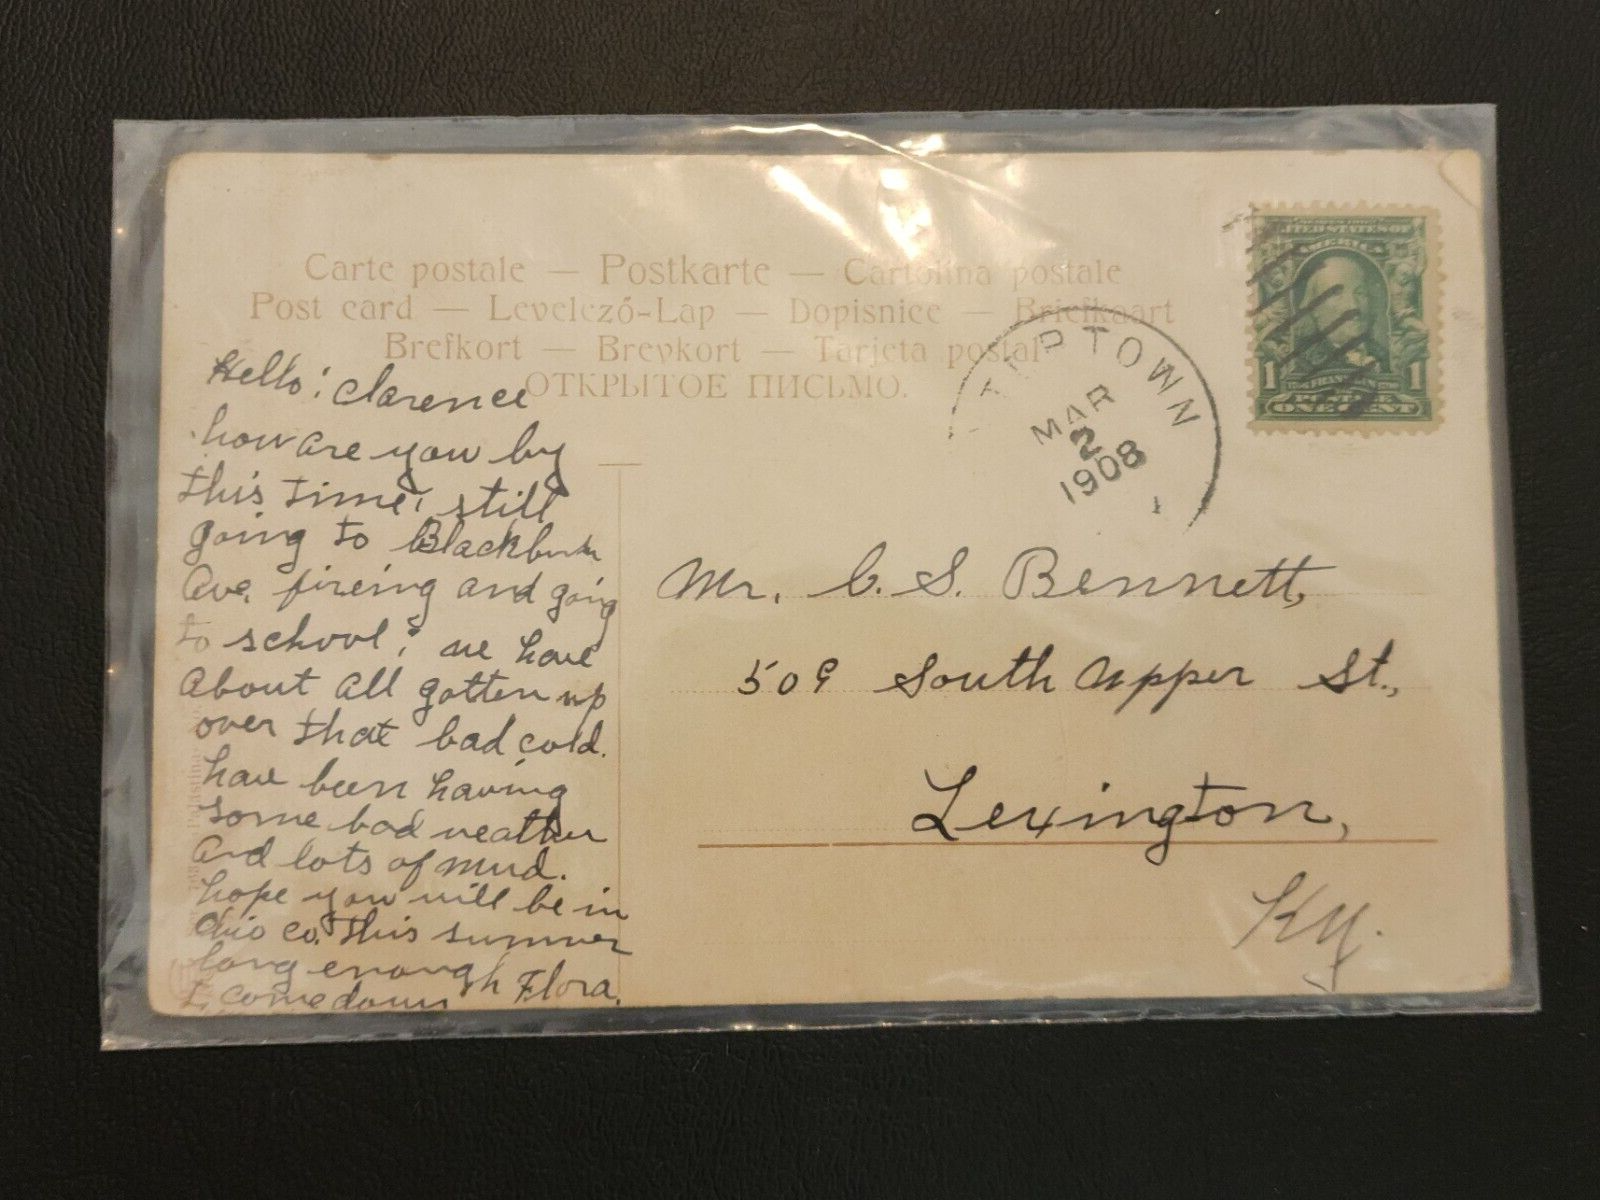 Carte postale — Postkarte — Cartolina postale
Post card — Levelező-Lap — Dopisnice — Briefkaart
Brefkort — Brevkort — Tarjeta postal
ОТКРЫТОЕ ПИСЬМО.
UNITED STATES OF
AMERICA
1 FRANKLIN 1
POSTAGE
ONE CENT
TOWN
MAR
2
1908
Hello! Clarence
how are you by
this time, still
going to
Ave. fireing and going
to school; we have
About all gotten up
over that bad cold.
have been having
some bad weather
and lots of mud.
hope you will be in
Ohio Co. this summer
long enough Flora.
I come down
Mr. C. S. Bennett,
509 South Upper St.,
Lexington,
Ky.